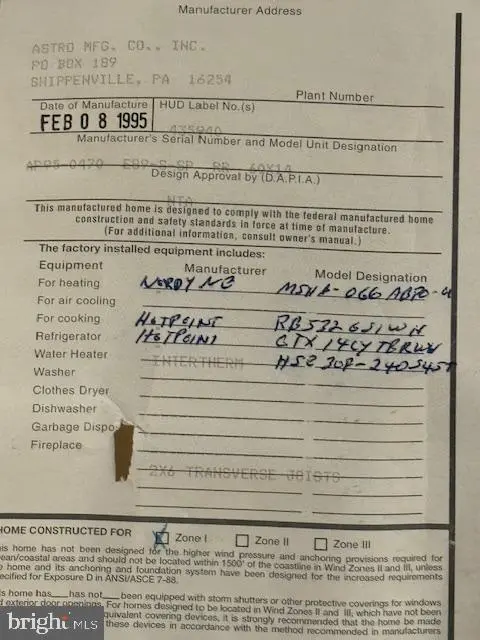 Manufacturer Address
ASTRO MFG. CO., INC.
PO BOX 189
SHIPPENVILLE, PA 16254
Plant Number
Date of Manufacture HUD Label No.(s)
FEB 08 1995
435940
Manufacturer's Serial Number and Model Unit Designation
AP95-0470 RR 60X14
Design Approval by (D.A.P.I.A.)
NTA
This manufactured home is designed to comply with the federal manufactured home
construction and safety standards in force at time of manufacture.
(For additional information, consult owner's manual.)
The factory installed equipment includes:
Equipment Manufacturer Model Designation
For heating NORDYNE
For air cooling
For cooking HOTPOINT
Refrigerator HOTPOINT
Water Heater INTERTHERM
Washer
Clothes Dryer
Dishwasher
Garbage Dispo
Fireplace
2X6 TRANSVERSE JOISTS
HOME CONSTRUCTED FOR X Zone I Zone II Zone III
is home has not been designed for the higher wind pressure and anchoring provisions required for
ean/coastal areas and should not be located within 1500' of the coastline in Wind Zones II and III, unless
home and its anchoring and foundation system have been designed for the increased requirements
ecified for Exposure D in ANSI/ASCE 7-88.
s home has___has not___been equipped with storm shutters or other protective coverings for windows
d exterior door openings. For homes designed to be located in Wind Zones II and III, which have not been
quivalent covering devices, it is strongly recommended that the home be made
these devices in accordance with the method recommended in manufacturers
bright MLS